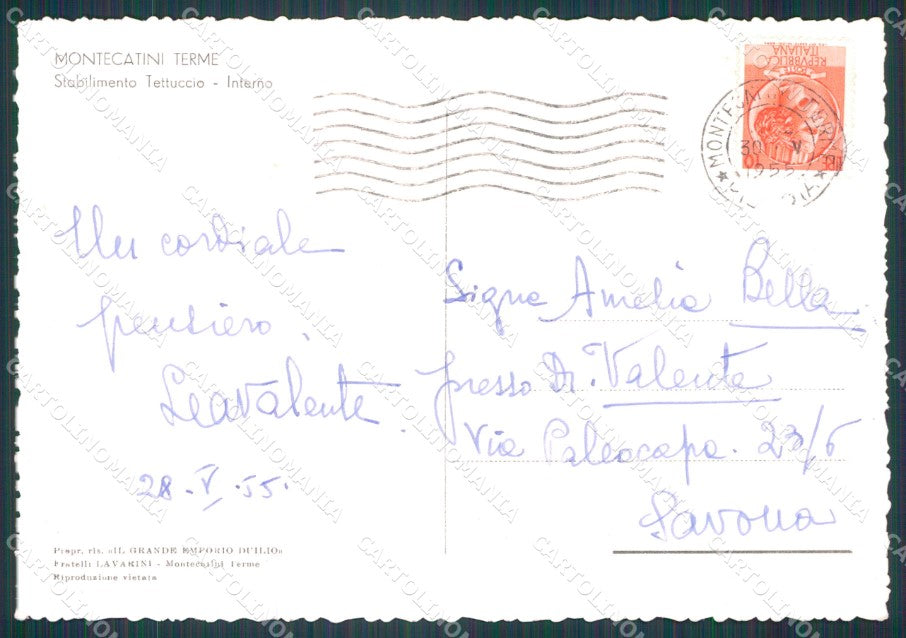 MONTECATINI TERME
Stabilimento Tettuccio - Interno
REPVBBLICA
ITALIANA
MONTECATINI TERME
30 V
1955
PISTOIA
Un cordiale
pensiero.
Lea Valente.
28 - V - 55.
Sigra Amelia Bella
presso Dr. Valente
Via Paleocapa. 23/6
Savona
Propr. ris. «IL GRANDE EMPORIO DUILIO»
Fratelli LAVARINI - Montecatini Terme
Riproduzione vietata
CARTOLINOMANIA